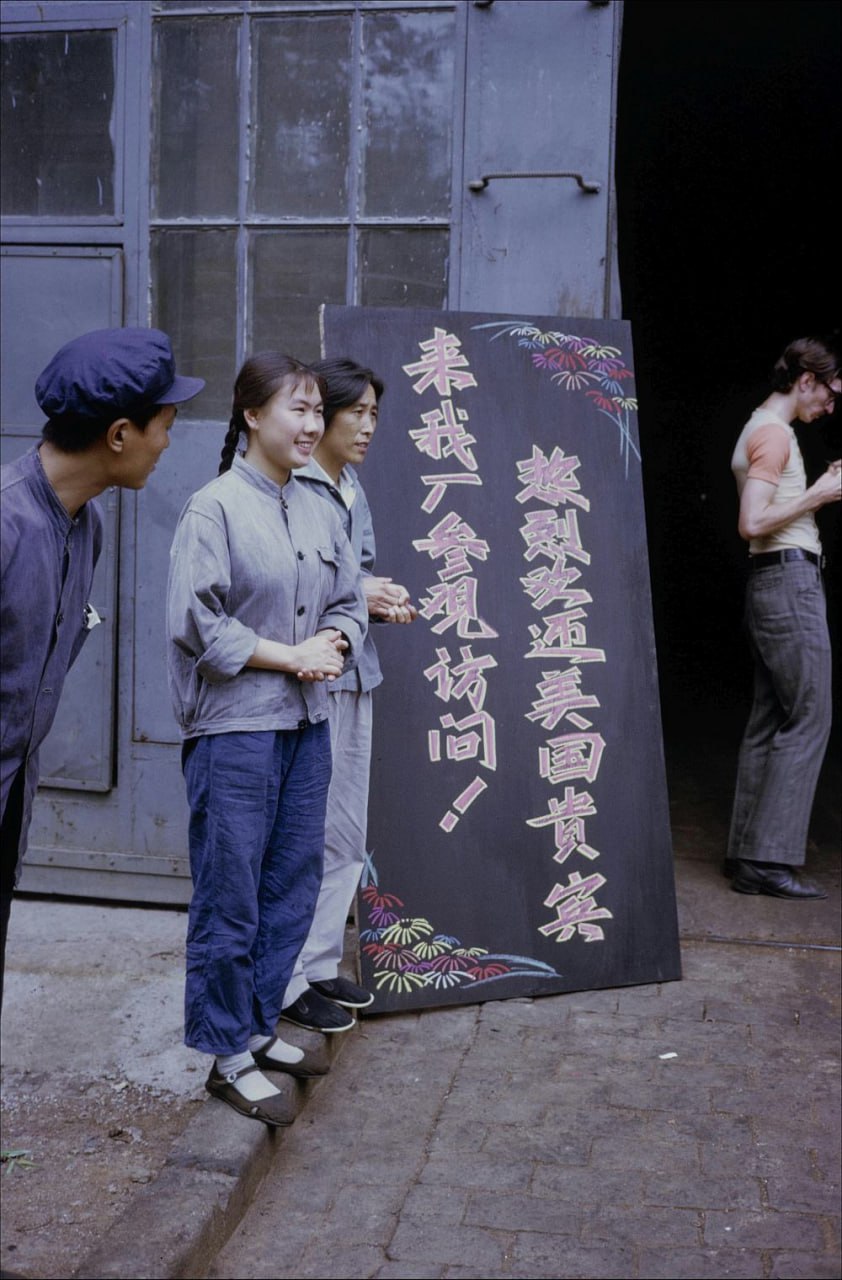 热烈欢迎美国贵宾
来我厂参观访问！